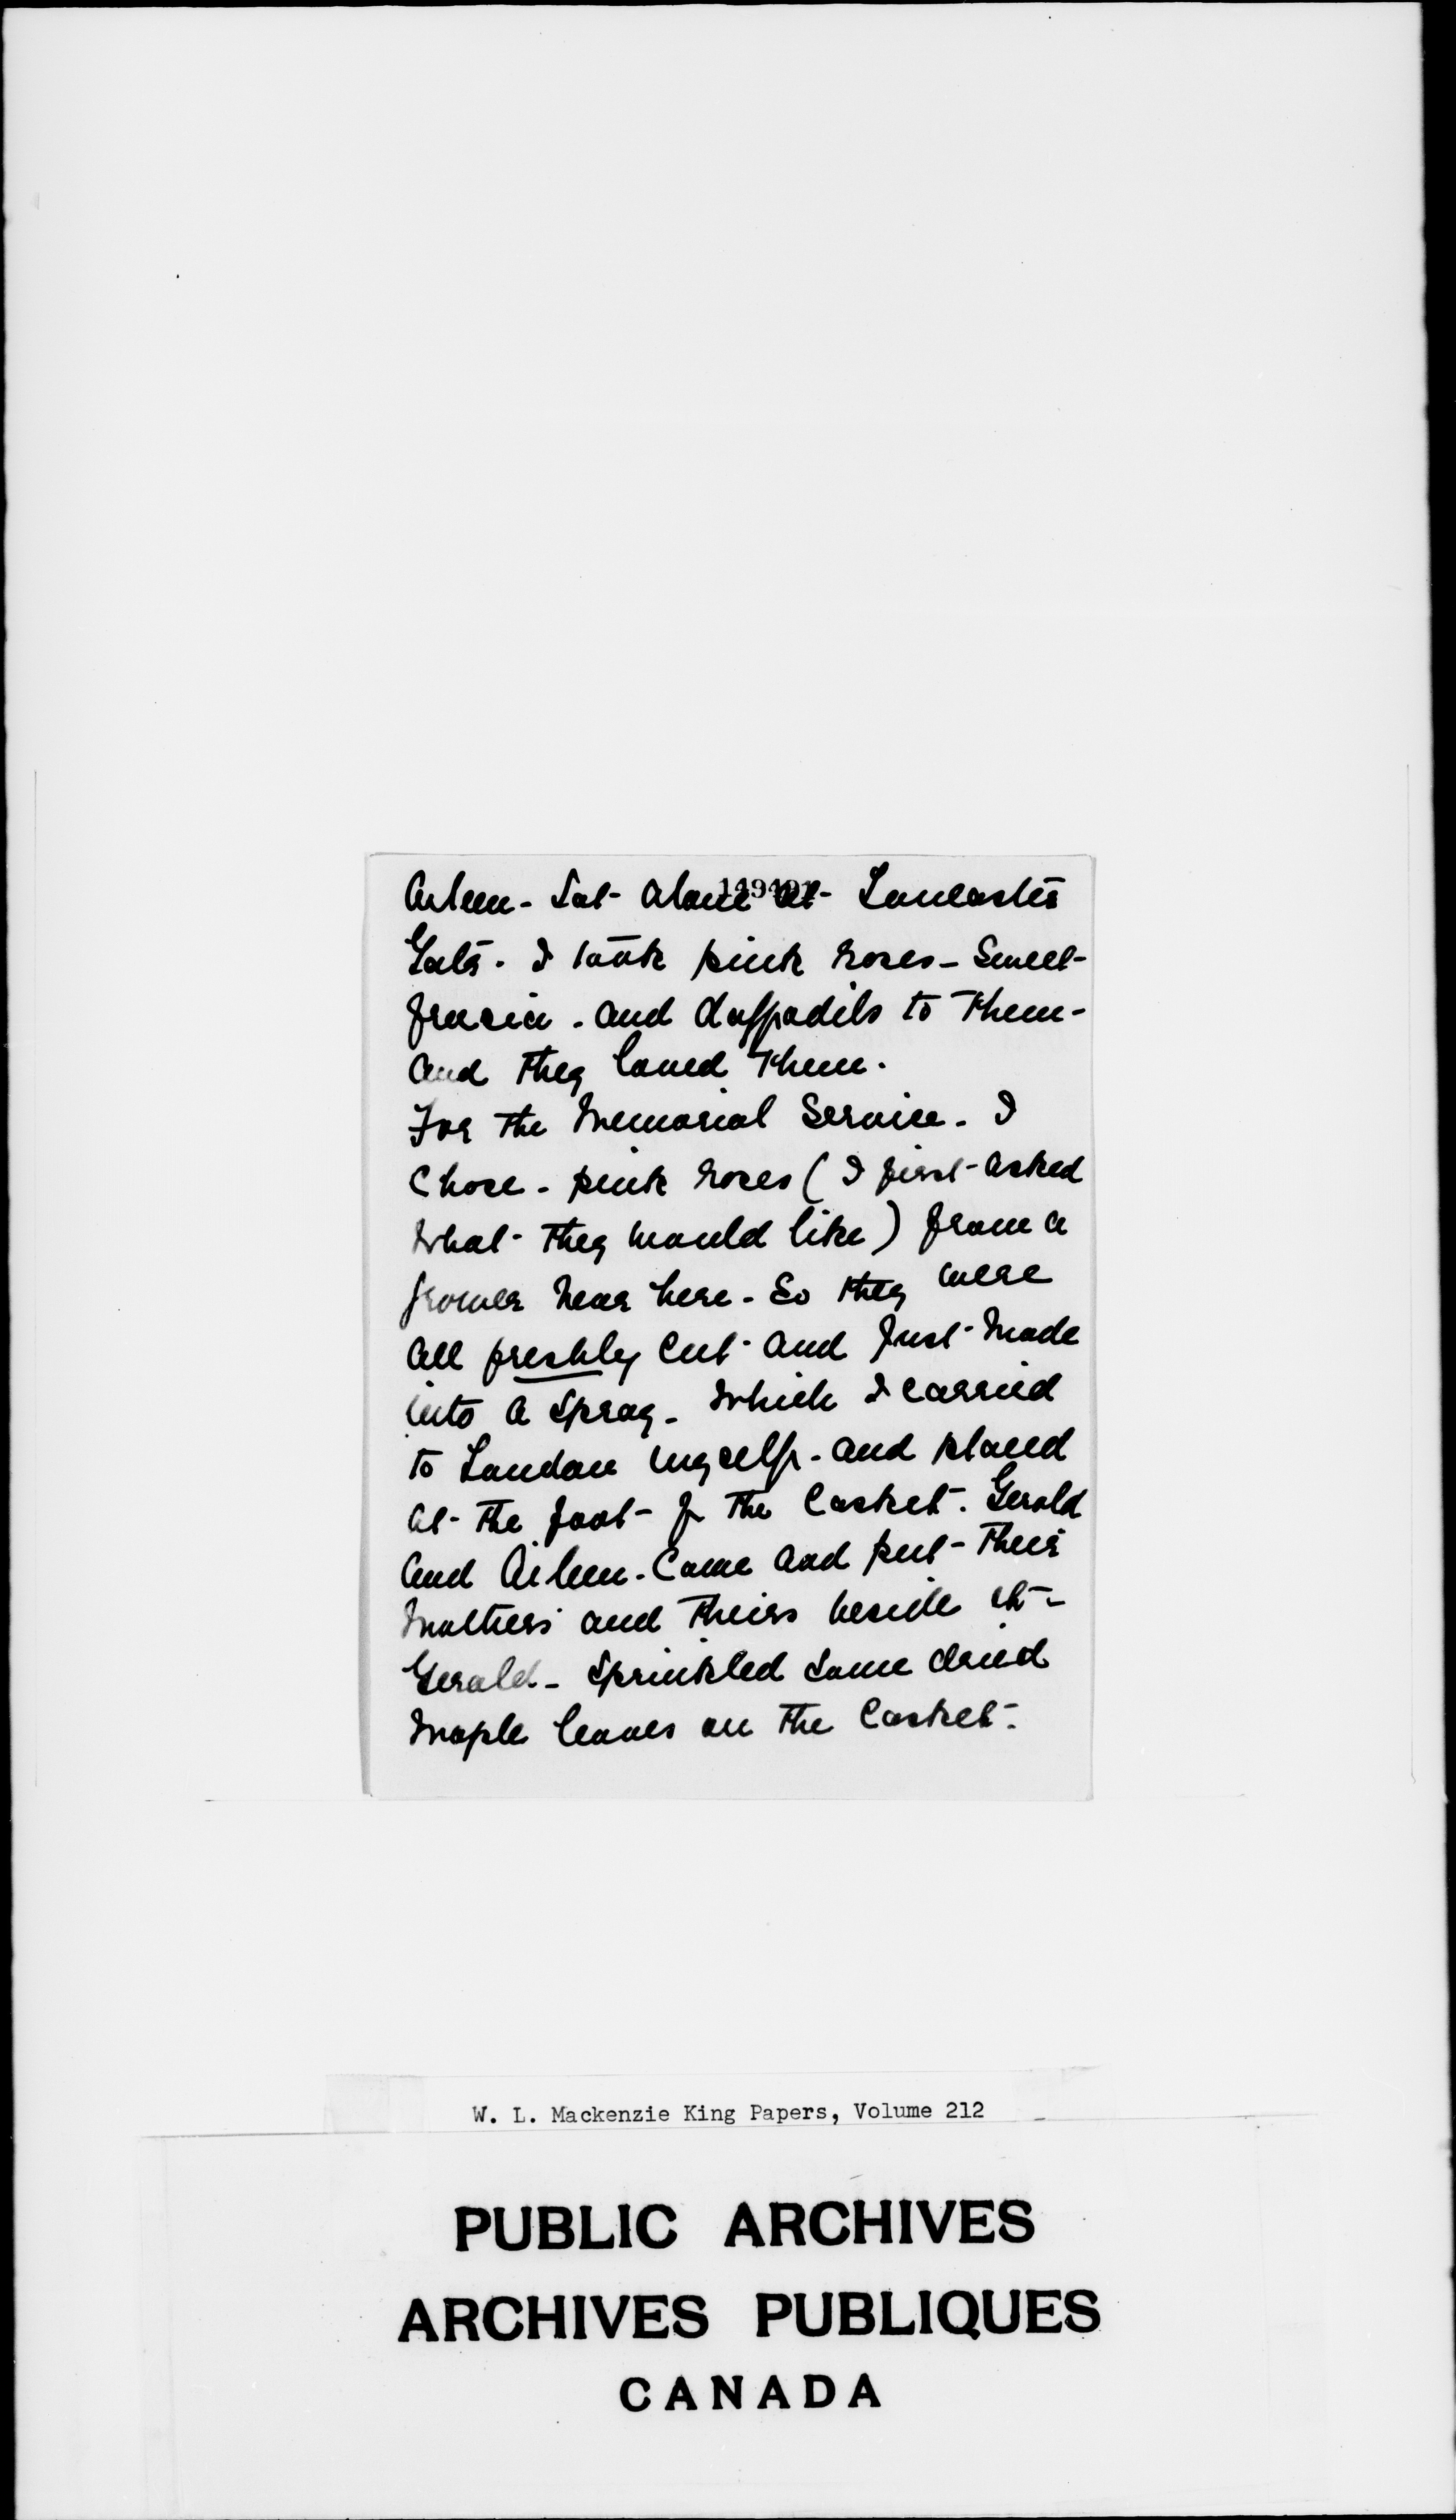 Aileen - Sat - alone at - Lancaster
Gate. I took pink roses - Sweet -
freesia - and daffodils to them -
and they loved them.
For the Memorial Service - I
chose - pink roses (I first - asked
what - they would like) from a
grower near here - So they were
all freshly cut - and just - made
into a spray - which I carried
to London myself - and placed
at - the foot - of the Casket - Gerald
and Aileen - Came and put - their
Mothers' and theirs beside it -
Gerald - Sprinkled some dried
Maple leaves on the Casket -
W. L. Mackenzie King Papers, Volume 212
PUBLIC ARCHIVES
ARCHIVES PUBLIQUES
CANADA